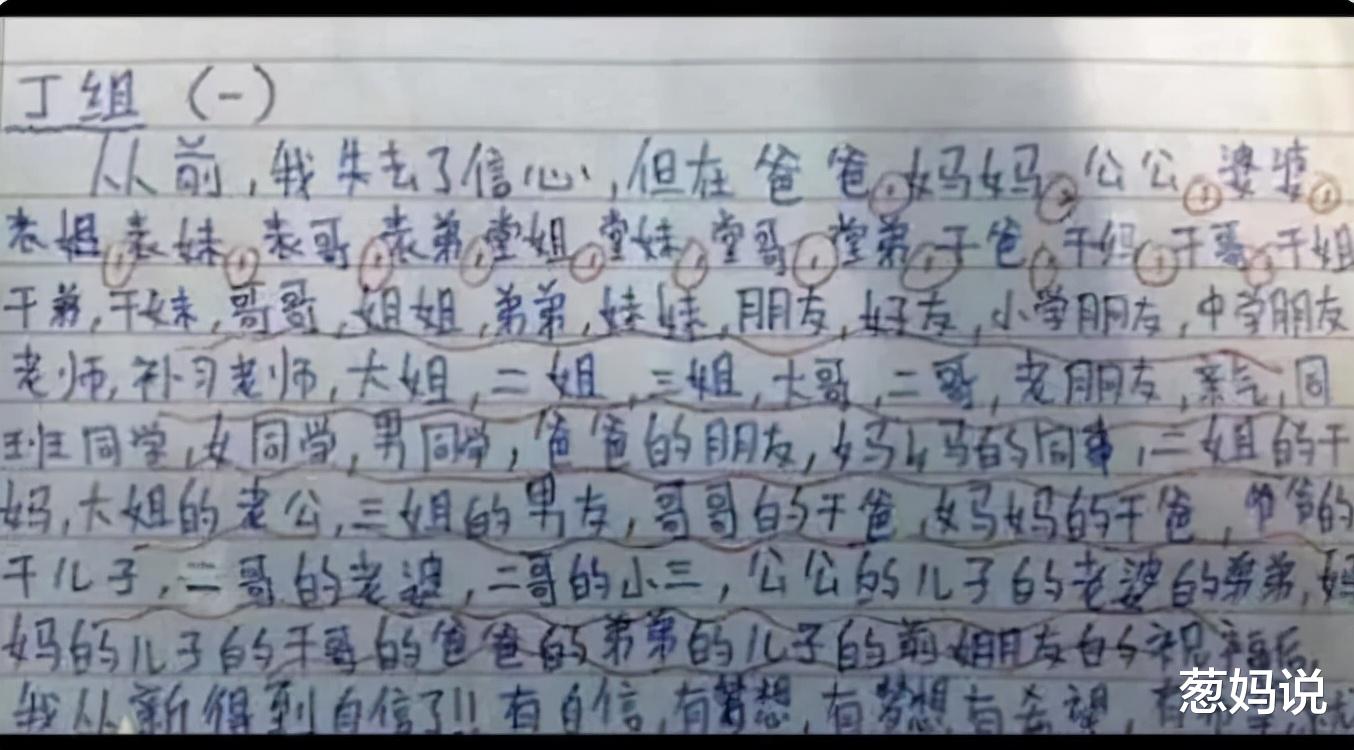 丁组 (一)
从前,我失去了信心,但在爸爸,妈妈,公公,婆婆,
表姐,表妹,表哥,表弟,堂姐,堂妹,堂哥,堂弟,干爸,干妈,干哥,干姐
干弟,干妹,哥哥,姐姐,弟弟,妹妹,朋友,好友,小学朋友,中学朋友
老师,补习老师,大姐,二姐,三姐,大哥,二哥,老朋友,亲戚,同
班同学,女同学,男同学,爸爸的朋友,妈妈的同事,二姐的干
妈,大姐的老公,三姐的男友,哥哥的干爸,妈妈的干爸,爸爸的
干儿子,二哥的老婆,二哥的小三,公公的儿子的老婆的弟弟,妈
妈的儿子的干哥的爸爸的弟弟的儿子的前女朋友的祝福后,
我从新得到自信了!!有自信,有梦想,有梦想有希望,有
葱妈说